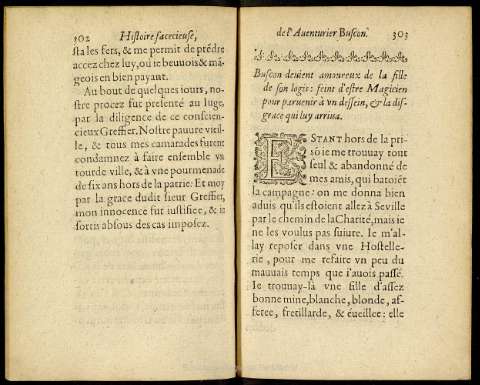 302 Histoire facecieuse,
sta les fers, & me permit de prẽdre
accez chez luy, où ie beuuois & mã-
geois en bien payant.
Au bout de quelques iours, no-
stre procez fut presenté au Iuge,
par la diligence de ce conscien-
cieux Greffier. Nostre pauure vieil-
le, & tous mes camarades furent
condamnez à faire ensemble vn
tour de ville, & à vne pourmenade
de six ans hors de la patrie: Et moy
par la grace dudit sieur Greffier,
mon innocence fut iustifiee, & ie
sortis absous des cas imposez.
de l'Auenturier Buscon. 303
Buscon deuient amoureux de la fille
de son logis: feint d'estre Magicien
pour paruenir à vn dessein, & la dis-
grace qui luy arriua.
ESTANT hors de la pri-
sõ ie me trouuay tout
seul & abandonné de
mes amis, qui batoiẽt
la campagne: on me donna bien
aduis qu'ils estoient allez à Seville
par le chemin de la Charité, mais ie
ne les voulus pas suiure. Ie m'al-
lay reposer dans vne Hostelle-
rie, pour me refaire vn peu du
mauuais temps que i'auois passé.
Ie trouuay-là vne fille d'assez
bonne mine, blanche, blonde, af-
fetee, fretillarde, & éueillee: elle